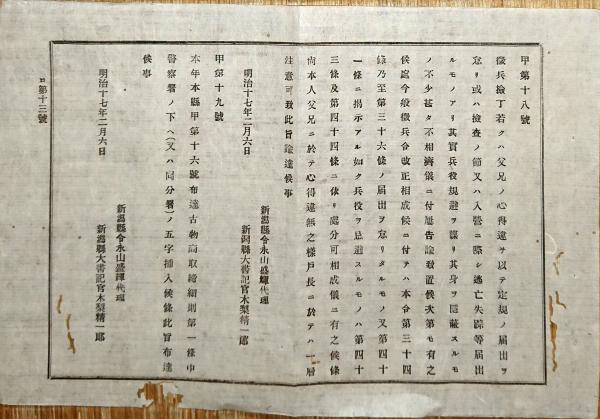 甲第十八號
徴兵檢丁若クハ父兄ノ心得違ヲ以テ定規ノ届出ヲ
怠リ或ハ檢査ノ節又ハ入營ニ際シ逃亡失踪等届出
ルモノアリ其實兵役規避ヲ謀リ其身ヲ隱蔽スルモ
ノ不少甚タ不相濟儀ニ付屢告諭致置候次第モ有之
候處今般徴兵令改正相成候ニ付テハ本令第三十四
條乃至第三十六條ノ届出ヲ怠リタルモノ又第四十
一條ニ揭示アル如ク兵役ヲ忌避スルモノハ第四十
三條及第四十四條ニ依リ處分可相成儀ニ有之候條
尚本人父兄ニ於テ心得違無之樣戶長ニ於テハ一層
注意可致此旨諭達候事
明治十七年二月六日
新潟縣令永山盛輝代理
新潟縣大書記官木梨精一郎
甲第十九號
本年本縣甲第十六號布達古物商取締細則第一條中
警察署ノ下ヘ(又ハ同分署)ノ五字挿入候條此旨布達
候事
明治十七年二月六日
新潟縣令永山盛輝代理
新潟縣大書記官木梨精一郎
第十三號